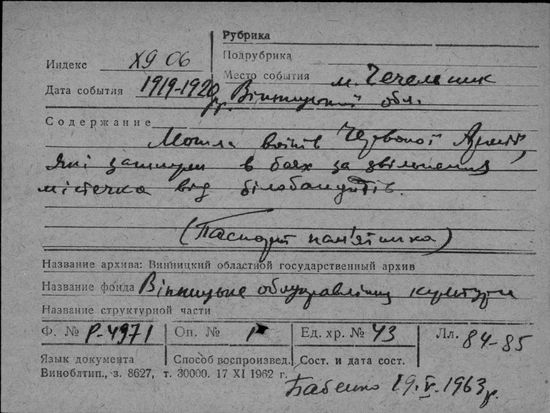 Рубрика
Индекс XЯ 06 Подрубрика
Место события м. Чечельник
Дата события 1919-1920 рр. Вінницької обл.
Содержание
Могила воїнів Червоної Армії,
які загинули в боях за звільнення
містечка від білобандитів.
(Паспорт пам'ятника)
Название архива: Винницкий областной государственный архив
Название фонда Вінницьке облуправління культури
Название структурной части
Ф. № Р-4971 Оп. № 1 Ед. хр. № 43 Лл. 84-85
Язык документа Способ воспроизвед. Сост. и дата сост.
Виноблтип., з. 8627, т. 30000. 17 XI 1962 г. Бабенко 19.V.1963 р.